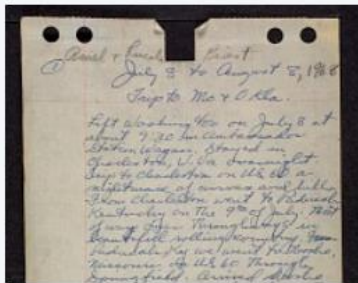 July 8 to August 8, 1968
Trip to Mo & Okla.
Left Washington on July 8 at
about 9:30 in Ambassador
Station Wagon. Stayed in
Charleston, W. Va overnight.
Trip to Charleston on US 60 a
nightmare of curves and hills.
From Charleston went to Paducah
Kentucky on the 9th of July. Most
of way over Throughways in
beautiful rolling country. From
Paducah, Ky we went to
Missouri on US 60 through
Springfield. Arrived